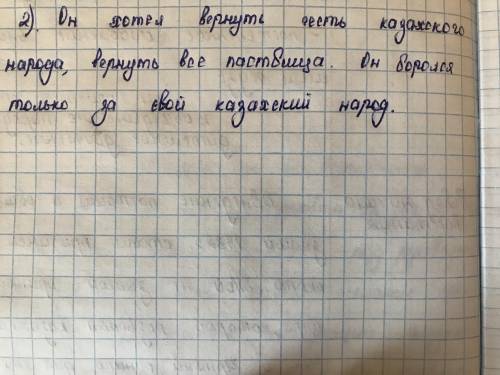 2). Он хотел вернуть честь казахского
народа, вернуть все пастбища. Он боролся
только за свой казахский народ.